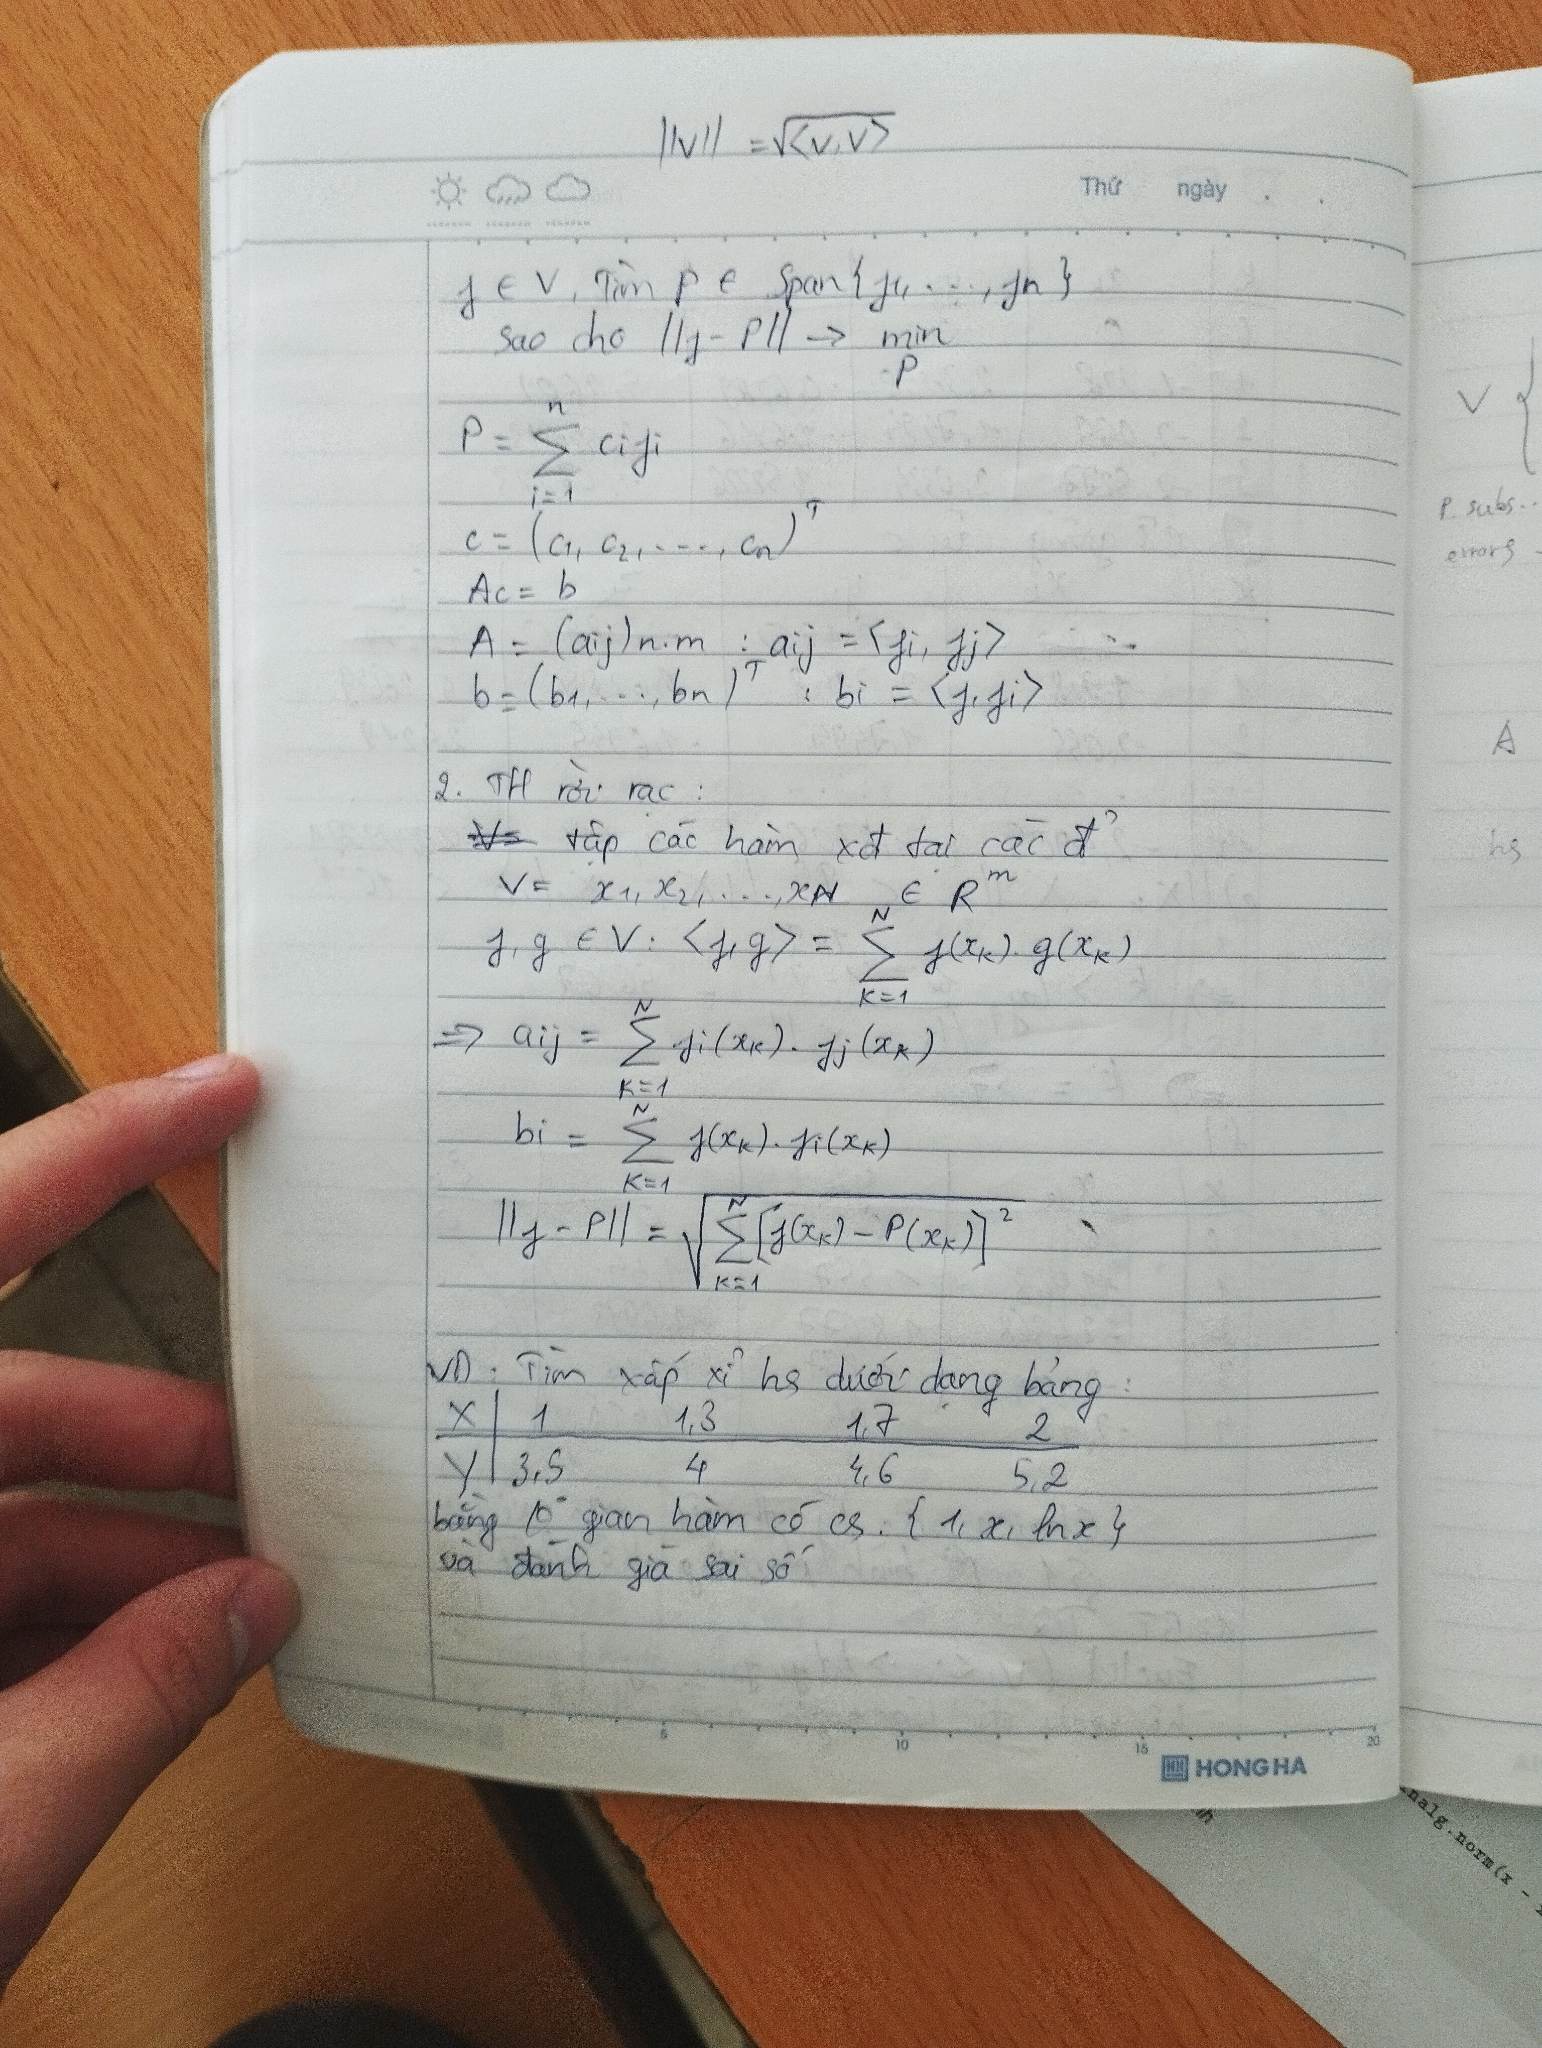 ||v|| = √<v,v>
Thứ ngày . .
f ∈ V, Tìm P ∈ Span{f1, ..., fn}
sao cho ||f - P|| → min
P
P = n∑i=1 cifi
c = (c1, c2, ..., cn)^T
Ac = b
A = (aij)n.m : aij = <fi, fj>
b = (b1, ..., bn)^T : bi = <f, fi>
2. TH rời rạc :
tập các hàm xđ tại các đ'
V = x1, x2, ..., xN ∈ R^m
f, g ∈ V : <f, g> = N∑K=1 f(xK). g(xK)
⇒ aij = N∑K=1 fi(xK). fj(xK)
bi = N∑K=1 f(xK). fi(xK)
||f - P|| = √N∑K=1 [f(xK) - P(xK)]²
VD : Tìm xấp xỉ hs dưới dạng bảng :
X 1 1,3 1,7 2
Y 3,5 4 4,6 5,2
bằng gian hàm có cs : {1, x, lnx}
và đánh giá sai số
5 10 15 20
HONG HA
V {
P subs...
errors -
A
hs
nalg.norm(x -
nh